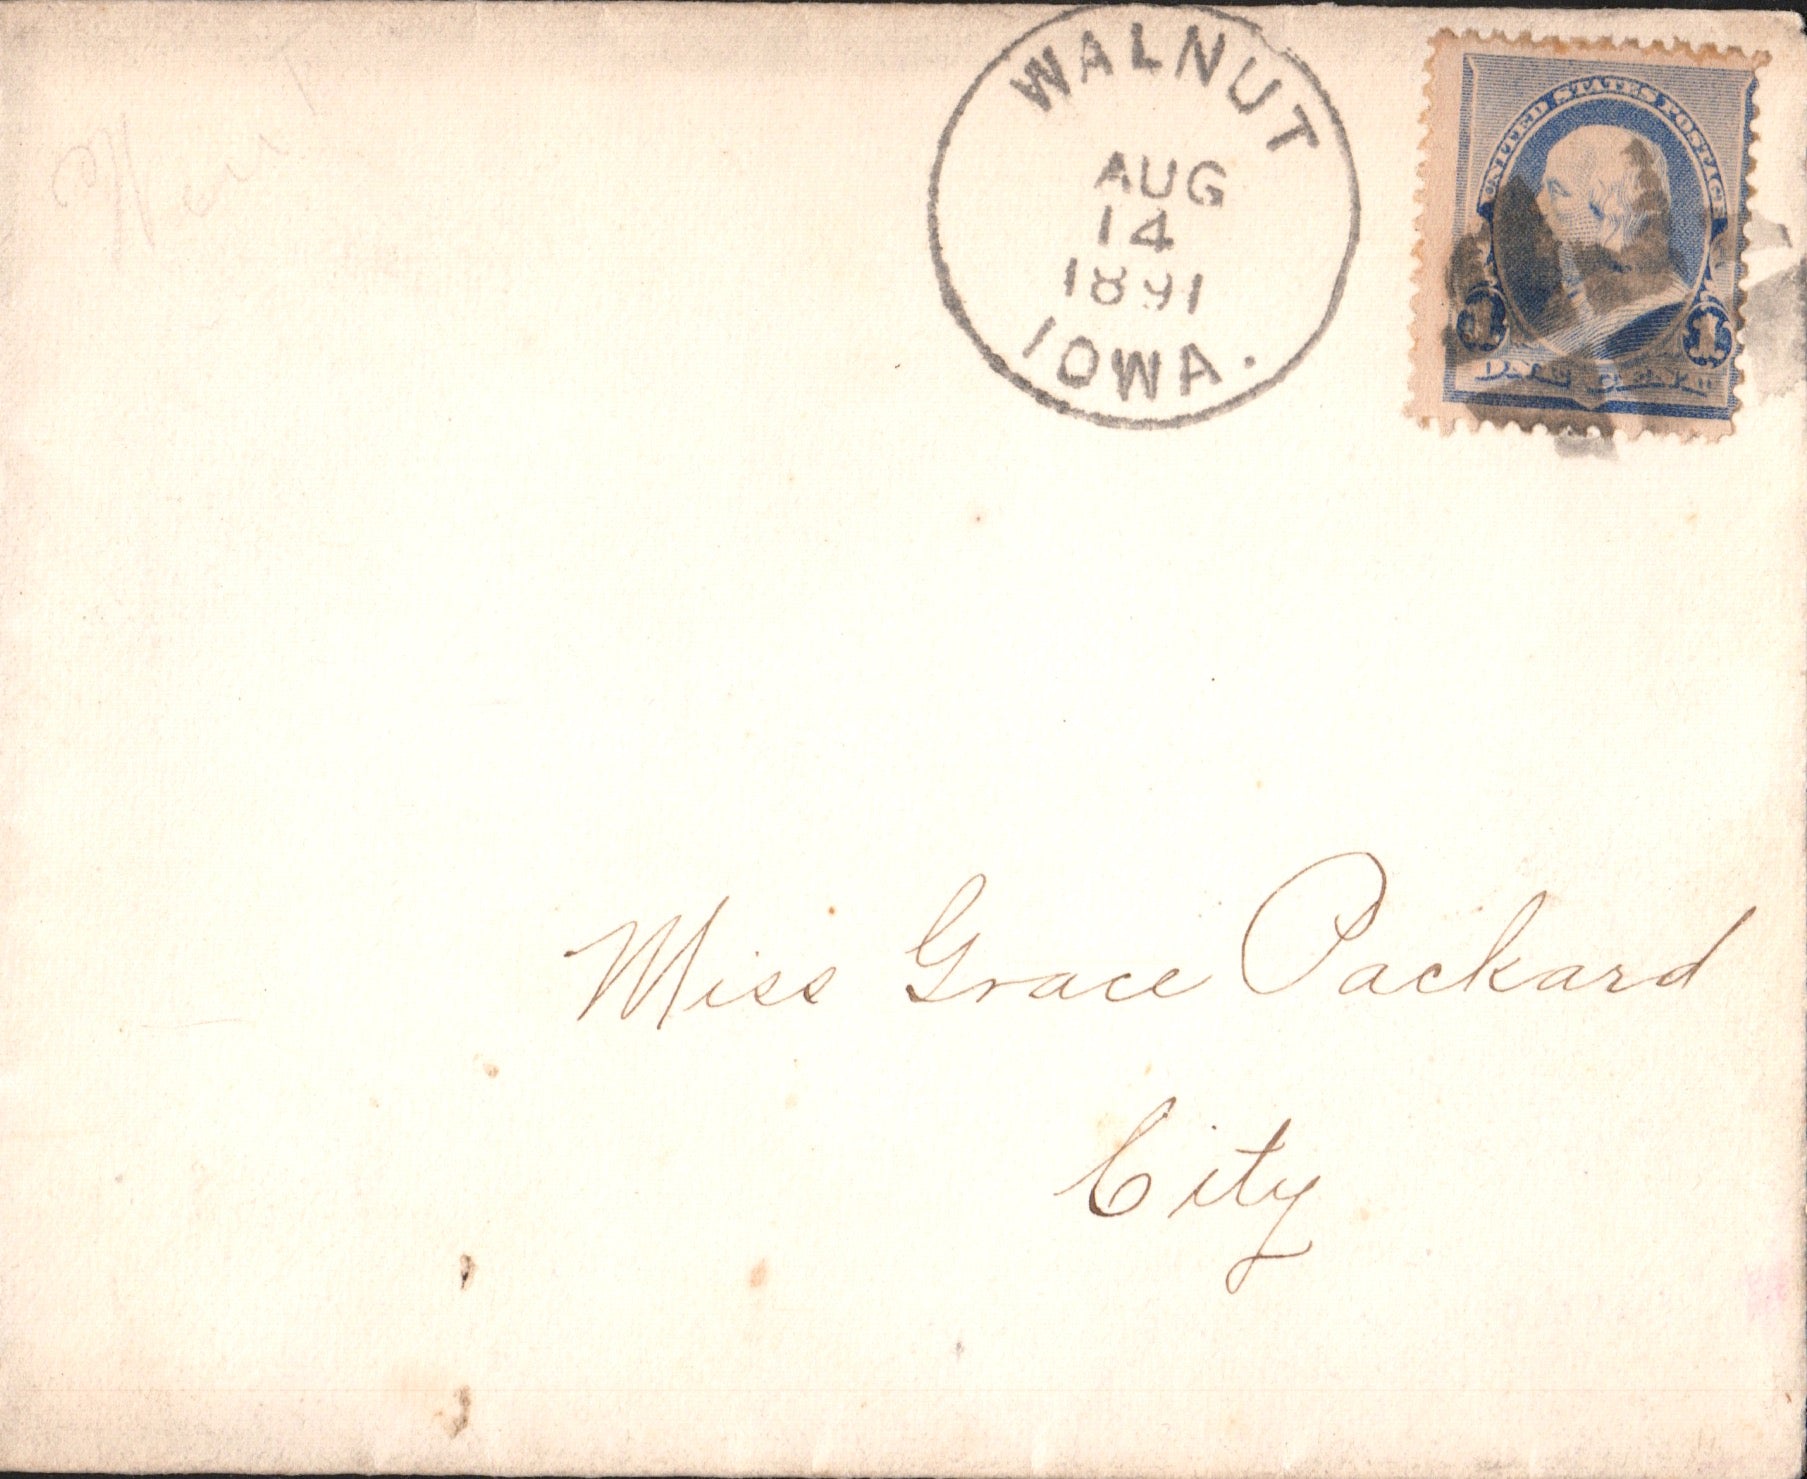 WALNUT
AUG
14
1891
IOWA.
UNITED STATES POSTAGE
1 1
Miss Grace Packard
City